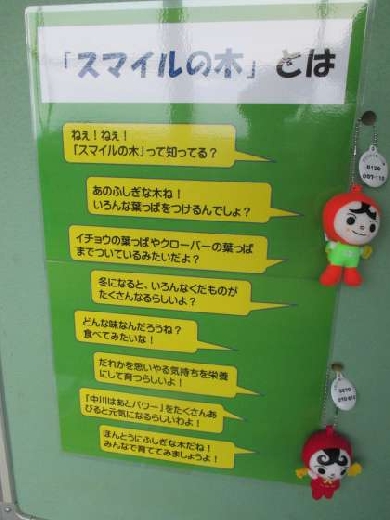 「スマイルの木」とは
ねぇ！ねぇ！
「スマイルの木」って知ってる？
あのふしぎな木ね！
いろんな葉っぱをつけるんでしょ？
イチョウの葉っぱやクローバーの葉っぱ
までついているみたいだよ？
冬になると、いろんなくだものが
たくさんなるらしいよ？
どんな味なんだろうね？
食べてみたいな！
だれかを思いやる気持ちを栄養
にして育つらしいよ！
「中川はあとパワー」をたくさんあ
びると元気になるらしいわよ！
ほんとうにふしぎな木だね！
みんなで育ててみましょうよ！